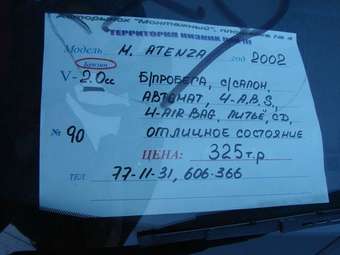 Авторынок "Монтажный",
ТЕРРИТОРИЯ НИЗКИХ ЦЕН!!!
Модель M. ATENZA год 2002
Бензин
V- 2.0cc Б/ПРОБЕГА, С/САЛОН,
АВТОМАТ, 4-A.B.S,
4-AIR BAG, ЛИТЬЁ, CD,
№ 90 ОТЛИЧНОЕ СОСТОЯНИЕ
ЦЕНА: 325 т.р
ТЕЛ 77-11-31, 606-366